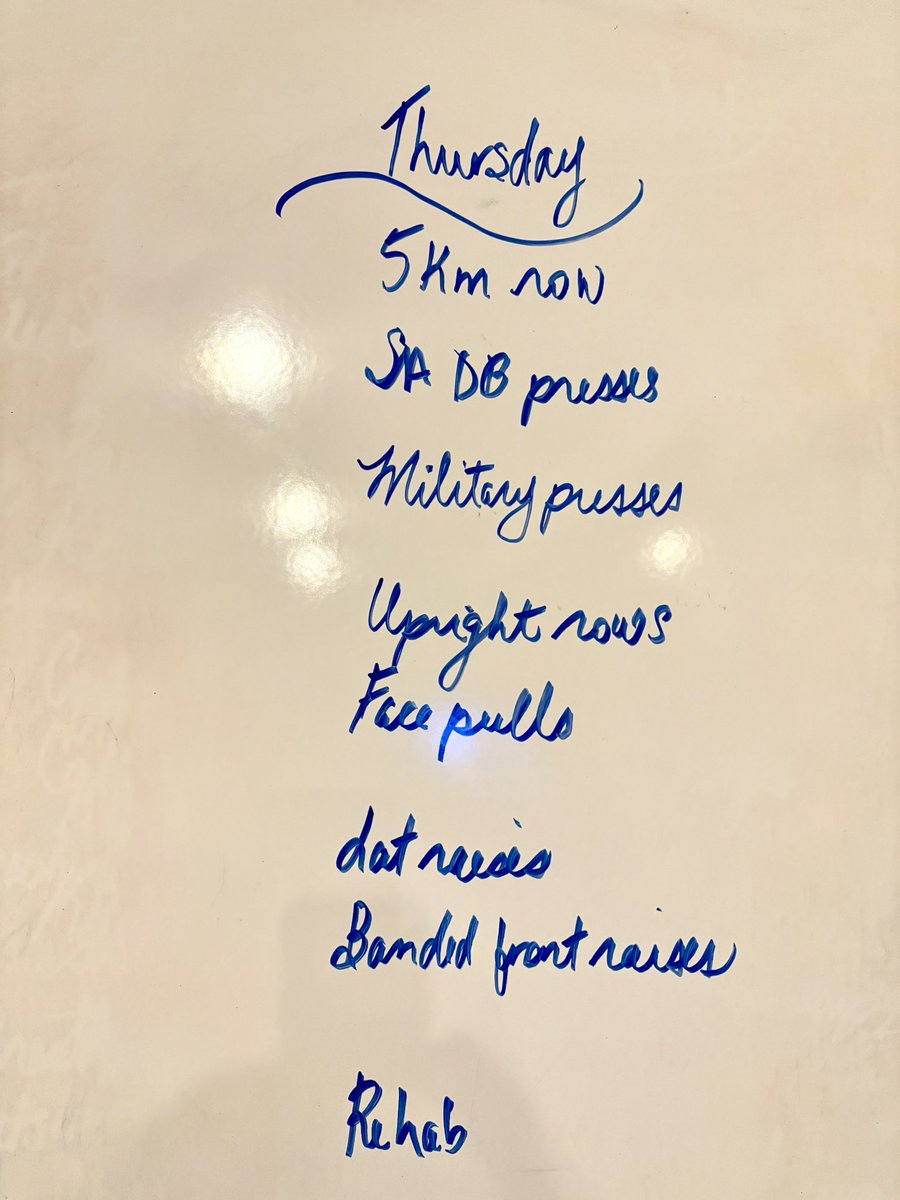 Thursday
5Km row
SA DB presses
Military presses
Upright rows
Face pulls
Lat raises
Banded front raises
Rehab